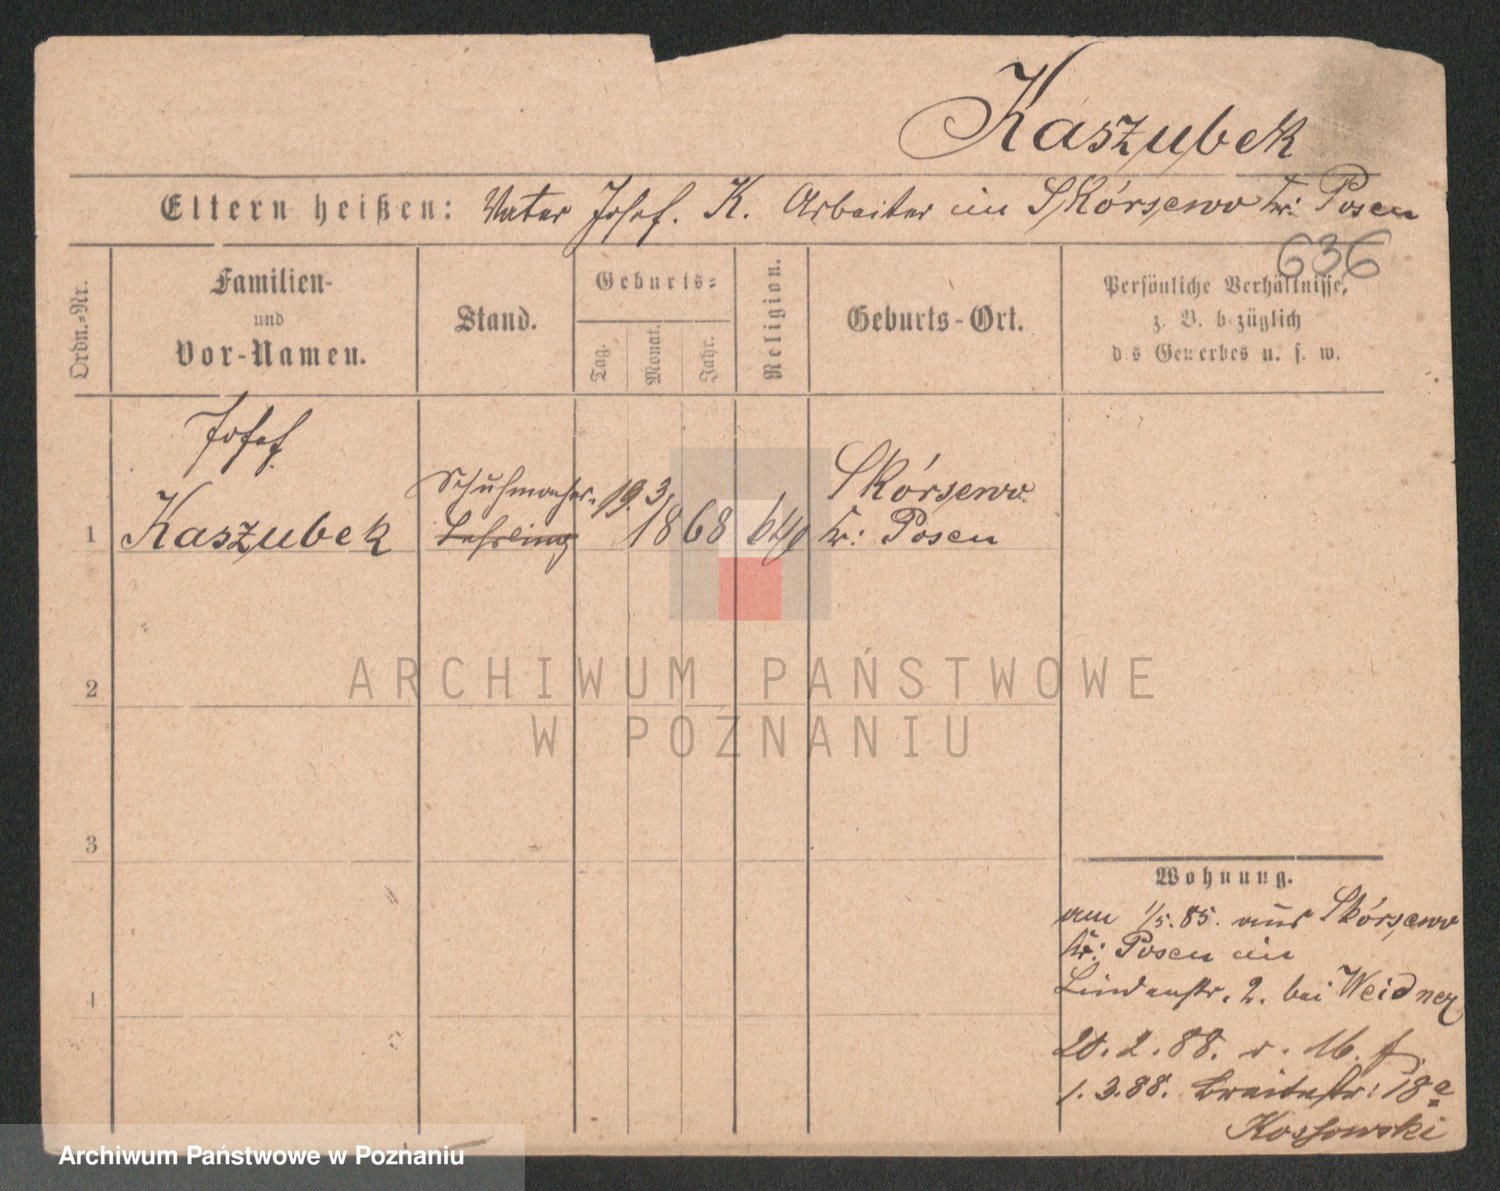 Kaszubek
Eltern heißen: Vater Josef. K. Arbeiter in Skórzewo Kr: Posen
636
Ordn.-Nr.
Familien-
und
Vor-Namen.
Stand.
Geburts-
Tag.
Monat.
Jahr.
Religion.
Geburts-Ort.
Persönliche Verhältnisse,
z. B. bezüglich
des Gewerbes u. s. w.
Josef
1 Kaszubek
Schuhmacher-
Lehrling
19. 3.
1868
Skórzewo
Kr: Posen
2
3
4
ARCHIWUM PAŃSTWOWE
W POZNANIU
Wohnung.
am 1/5. 85. aus Skórzewo
Kr: Posen in
Lindenstr. 2. bei Weidner
20. 2. 88. r. 16.
1. 3. 88. Breitestr: 18a
Kossowski
Archiwum Państwowe w Poznaniu